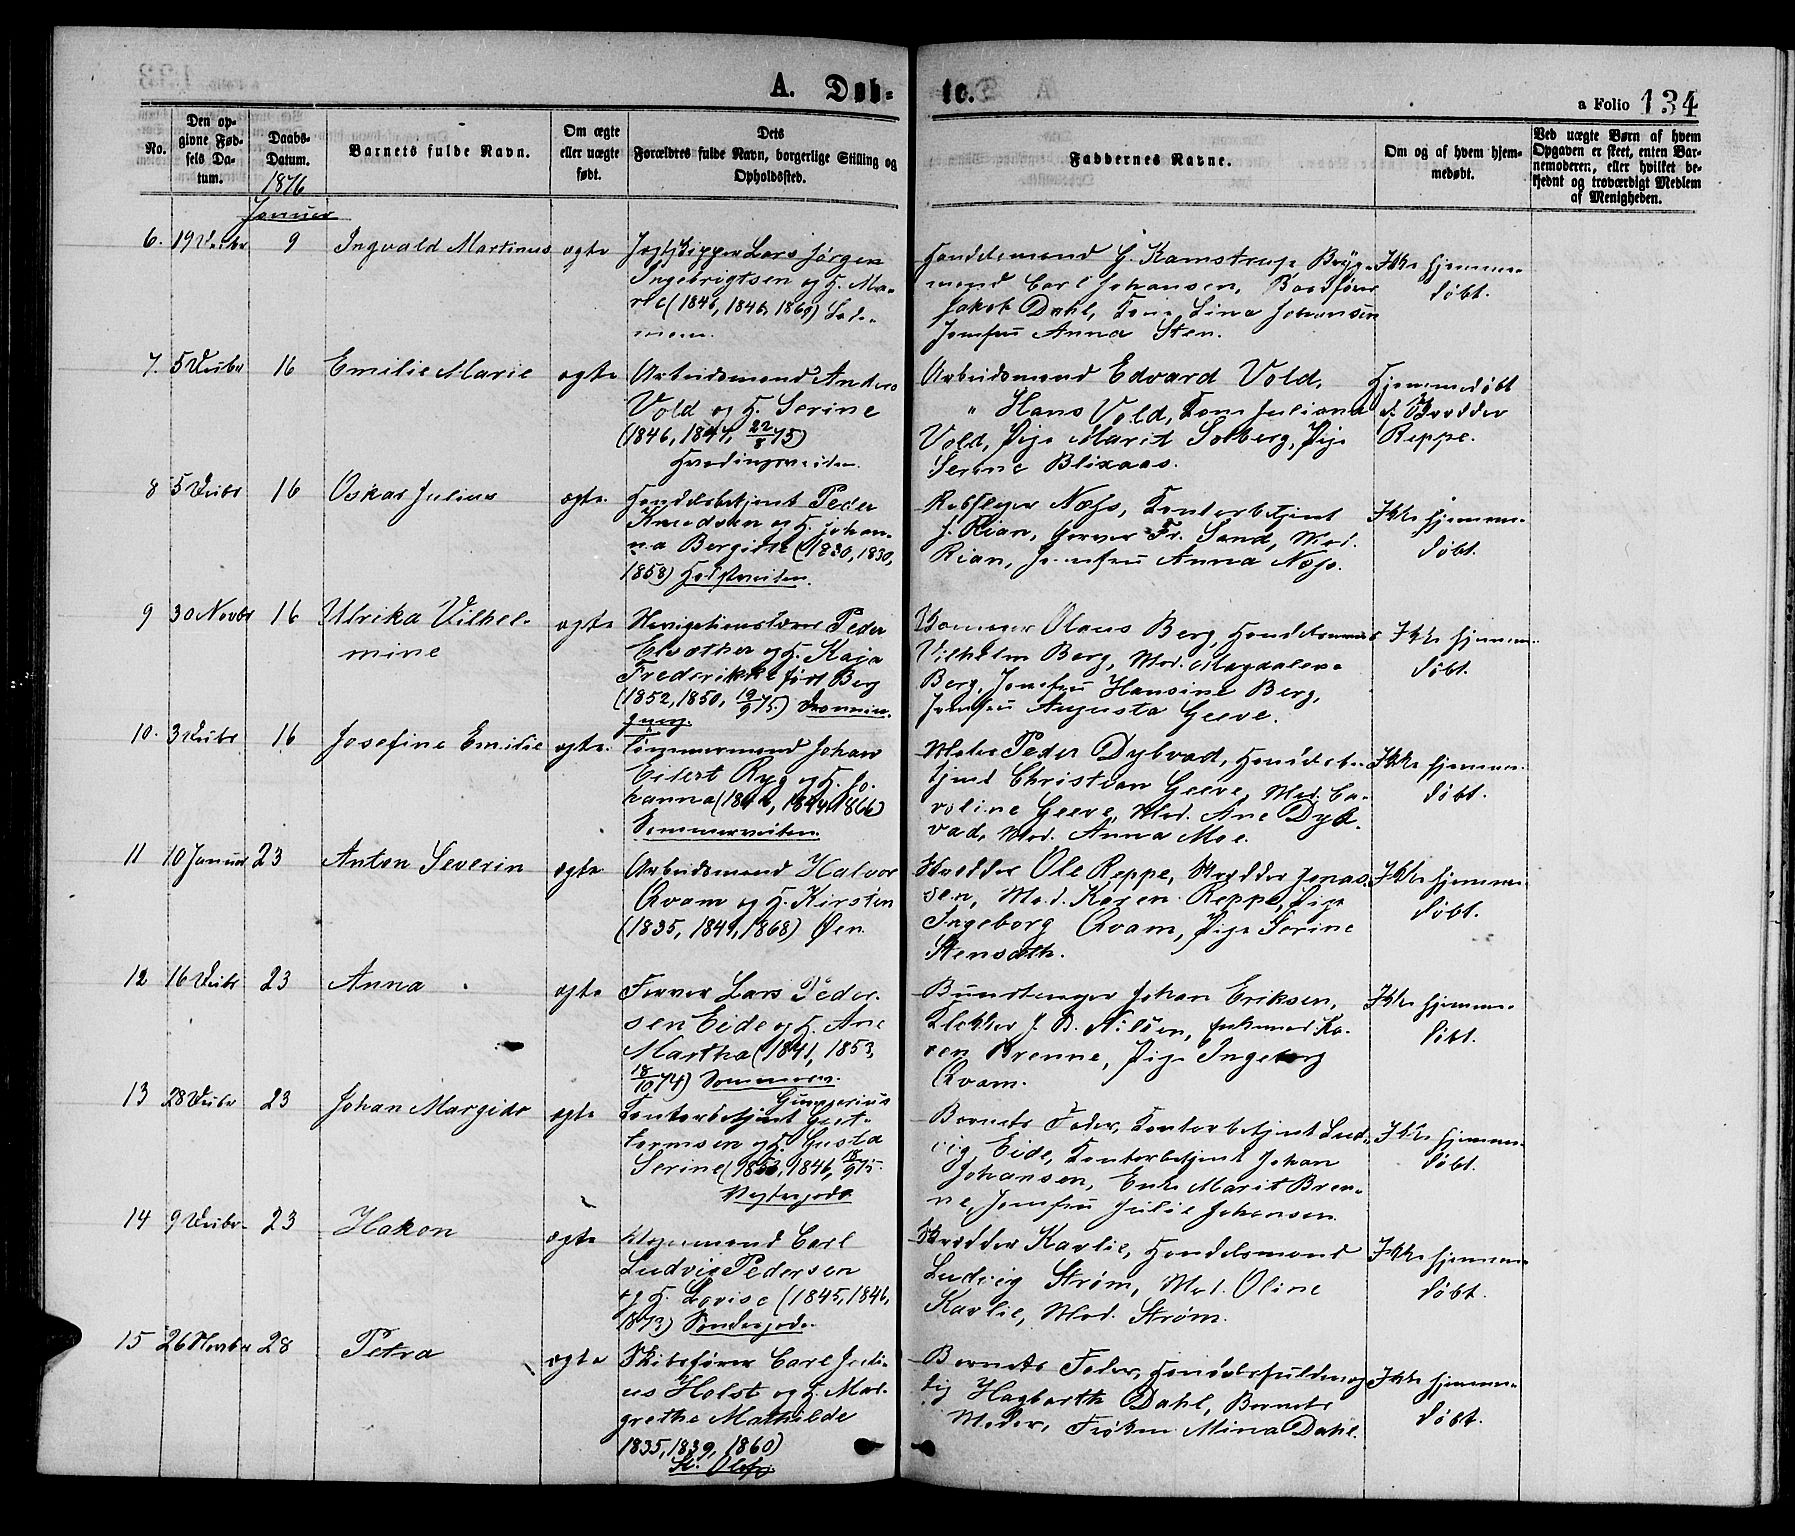 A. Døb-
te.
a Folio 134
No.
Den op-
givne Fød-
sels Da-
tum.
Daabs-
Datum.
1876
Barnets fulde Navn.
Om ægte
eller uægte
født.
Dets
Forældres fulde Navn, borgerlige Stilling og
Opholdssted.
Faddernes Navne.
Om og af hvem hjem-
medøbt.
Ved uægte Børn af hvem
Opgaven er skeet, enten Bar-
nemoderen, eller hvilket be-
kjendt og troværdigt Medlem
af Menigheden.
Januar
6. 19 Decbr 9 Ingvald Martinus ægte
Lars Jørgen
Ingebrigtsen og H. Ma-
(1846, 1846, 1860)
Handelsmand G. Kamstrup,
mand Carl Johansen,
Jakob Dahl, Kone Lina Johansen
Jomfru Anna Sten.
Ikke hjemme-
døbt.
7. 5 Decbr 16 Emilie Marie ægte
Arbeidsmand Anders
Vold og H. Serine
(1846, 1847, 22/8 75)
Arbeidsmand Edvard Vold,
" Hans Vold, Kone Juliana
Vold, Pige Marit Solberg, Pige
Serine Blixaas.
Hjemmedøbt
Reppe.
8 5 Decbr 16 Oskar Julius ægte.
Handelsbetjent Peder
Knudsen og H. Johan-
na Bergitte (1830, 1830,
1858)
Rebslager Næss, Kontorbetjent
J. Rian, Garver Fr. Sand, Mad.
Rian, Jomfru Anna Næss.
Ikke hjemme-
døbt.
9 30 Novbr 16 Ulrika Vilhel-
mine
ægte
Navigationslærer Peder
Elvæther og H. Kaja
Frederikke født Berg
(1852, 1850, 19/9 75)
Olaus Berg, Handelsmand
Vilhelm Berg, Mad. Magdalene
Berg, Jomfru Hansine Berg,
Jomfru Augusta Geeve.
Ikke hjemme-
døbt.
10. 3 Decbr 16 Josefine Emilie ægte.
Tømmermand Johan
Eilert Ryg og H. Jo-
hanna
Sommerveiten.
Maler Peder Dybvad, Handelsbe-
tjent Christian Geeve, Mad. Ca-
roline Geeve, Mad. Ane Dyb-
vad, Mad. Anna Moe.
Ikke hjemme-
døbt.
11 10 Januar 23 Anton Severin ægte
Arbeidsmand Halvor
Qvam og H. Kirsten
(1835, 1849, 1868) Øen
Skrædder Ole Reppe, Skrædder Jonas-
sen, Mad. Karen Reppe, Pige
Ingeborg Qvam, Pige Serine
Stensæth.
Ikke hjemme-
døbt.
12 16 Decbr 23 Anna ægte
Farver Lars Peder-
sen Eide og H. Ane
Martha (1841, 1853,
18/10 74)
Bundtmager Johan Eriksen,
Klokker J. B. Nilsen, Enkemad. Ka-
ren Brenne, Pige Ingeborg
Qvam.
Ikke hjemme-
døbt.
13 28 Decbr 23 Johan Margido ægte
Kontorbetjent
og H. Gusta
Serine (1853, 1846, 18/9 75
Barnets Fader, Kontorbetjent Lud-
vig Eide, Kontorbetjent Johan
Johansen, Enke Marit Bren-
ne, Jomfru Julie Johansen
Ikke hjemme-
døbt.
14 9 Decbr 23 Hakon ægte
Carl
Ludvig Pedersen
og H. Lovise (1845, 1846,
1873) Søndregade.
Skrædder Kavlie, Handelsmand
Ludvig Strøm, Mad. Oline
Kavlie, Mad. Strøm.
Ikke hjemme-
døbt.
15 26 Novbr 28 Petra ægte
Skibsfører Carl Juli-
us Holst og H. Mar-
grethe Mathilde
1835, 1839, 1860)
Barnets Fader, Handelsfuldmæg-
tig Hagbarth Dahl, Barnets
Moder, Frøken Mina Dahl.
Ikke hjemme-
døbt.